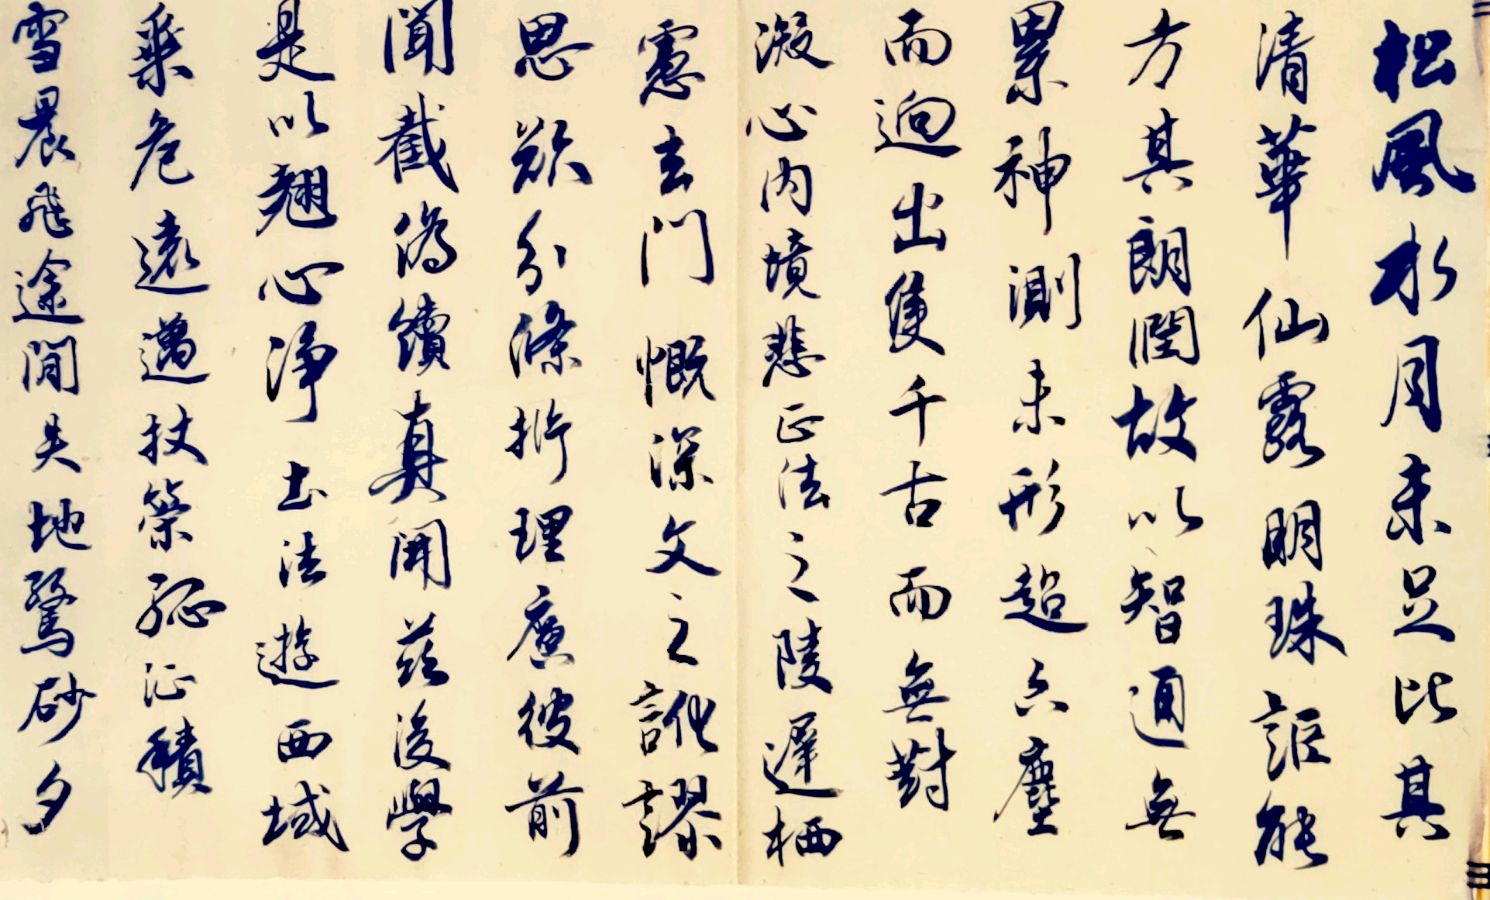 松風水月未足比其
清華仙露明珠詎能
方其朗潤故以智通無
累神測未形超六塵
而迥出隻千古而無對
凝心內境悲正法之陵遲栖
慮玄門慨深文之訛謬
思欲分條析理廣彼前
聞截偽續真開茲後學
是以翹心淨土法遊西域
乘危遠邁杖策孤征積
雪晨飛途間失地驚砂夕